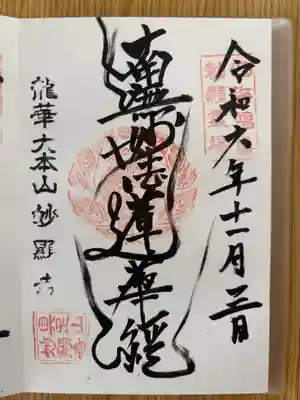 令和六年十一月三日
南無妙法蓮華経
龍華大本山妙顕寺